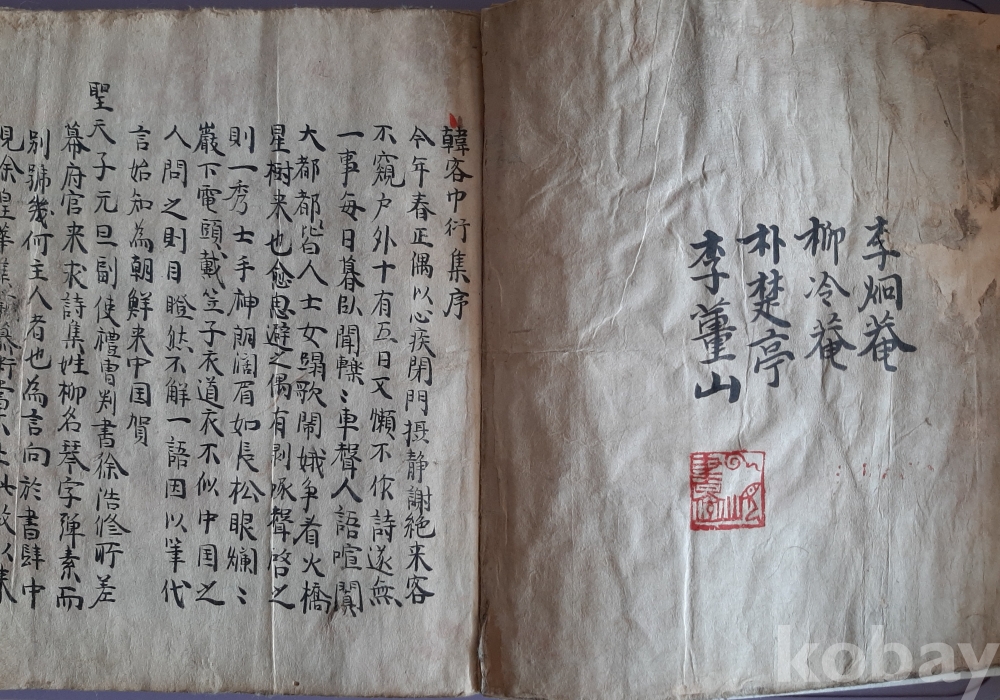 李炯菴
柳冷菴
朴楚亭
李薑山
韓客巾衍集序
今年春正偶以心疾閉門摂静謝絶来客
不窺户外十有五日又懶不作詩遂無
一事每日暮臥聞轣〻車聲人語喧闐
大都都皆人士女踢歌閙娥争看火橋
星樹来也愈思避之偶有剥啄聲啓之
則一秀士手神朗濶眉如長松眼爛〻
巌下電頭戴笠子衣道衣不似中国之
人問之則目瞪然不解一語因以筆代
言始知為朝鮮来中国賀
聖天子元旦副使禮曹判書徐浩修所差
幕府官来求詩集姓柳名琴字弾素而
别號幾何主人者也為言向於書肆中
見余皇華集
kobay